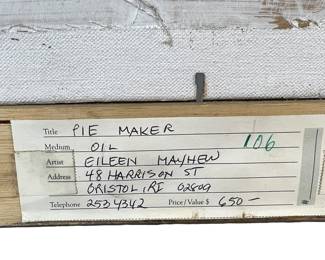 Title PIE MAKER
Medium OIL 106
Artist EILEEN MAYHEW
Address 48 HARRISON ST
BRISTOL, RI 02809
Telephone 253 4342 Price/Value $ 650-